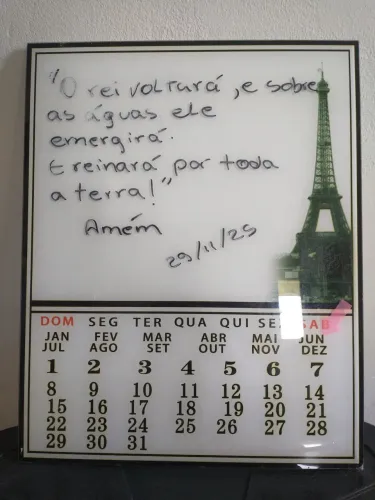 "O rei voltará, e sobre
as águas ele
emergirá.
E reinará por toda
a terra!"
Amém
29/11/25
DOM SEG TER QUA QUI SEX SAB
JAN FEV MAR ABR MAI JUN
JUL AGO SET OUT NOV DEZ
1 2 3 4 5 6 7
8 9 10 11 12 13 14
15 16 17 18 19 20 21
22 23 24 25 26 27 28
29 30 31